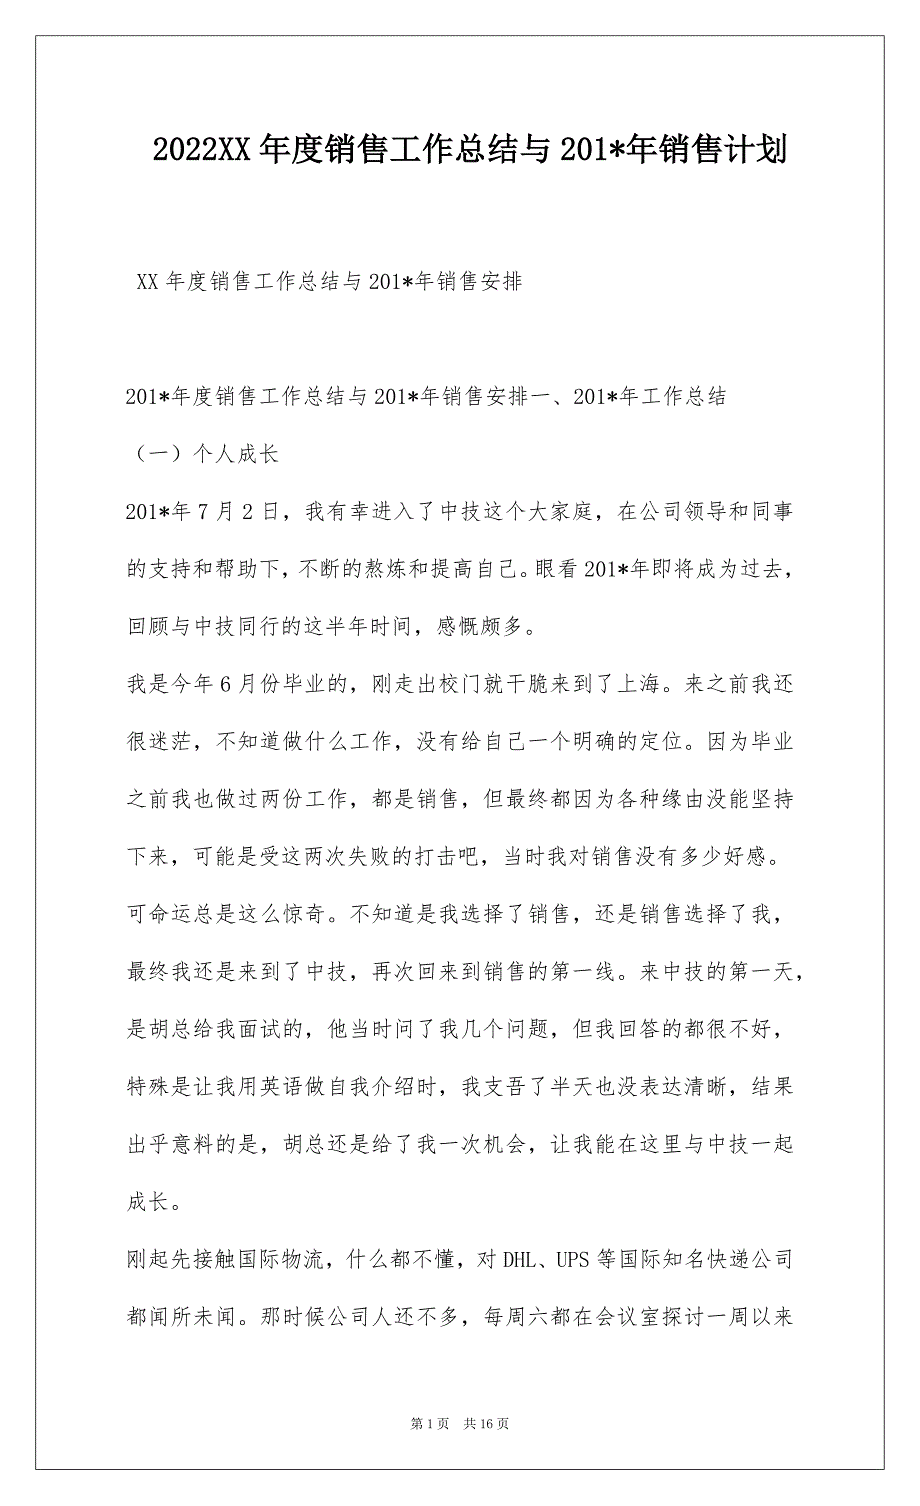 2022XX年度销售工作总结与201*年销售计划
XX年度销售工作总结与201*年销售安排
201*年度销售工作总结与201*年销售安排一、201*年工作总结
（一）个人成长
201*年7月2日，我有幸进入了中技这个大家庭，在公司领导和同事
的支持和帮助下，不断的熬炼和提高自己。眼看201*年即将成为过去，
回顾与中技同行的这半年时间，感慨颇多。
我是今年6月份毕业的，刚走出校门就干脆来到了上海。来之前我还
很迷茫，不知道做什么工作，没有给自己一个明确的定位。因为毕业
之前我也做过两份工作，都是销售，但最终都因为各种缘由没能坚持
下来，可能是受这两次失败的打击吧，当时我对销售没有多少好感。
可命运总是这么惊奇。不知道是我选择了销售，还是销售选择了我，
最终我还是来到了中技，再次回来到销售的第一线。来中技的第一天，
是胡总给我面试的，他当时问了我几个问题，但我回答的都很不好，
特殊是让我用英语做自我介绍时，我支吾了半天也没表达清晰，结果
出乎意料的是，胡总还是给了我一次机会，让我能在这里与中技一起
成长。
刚起先接触国际物流，什么都不懂，对DHL、UPS等国际知名快递公司
都闻所未闻。那时候公司人还不多，每周六都在会议室探讨一周以来
第1页 共16页